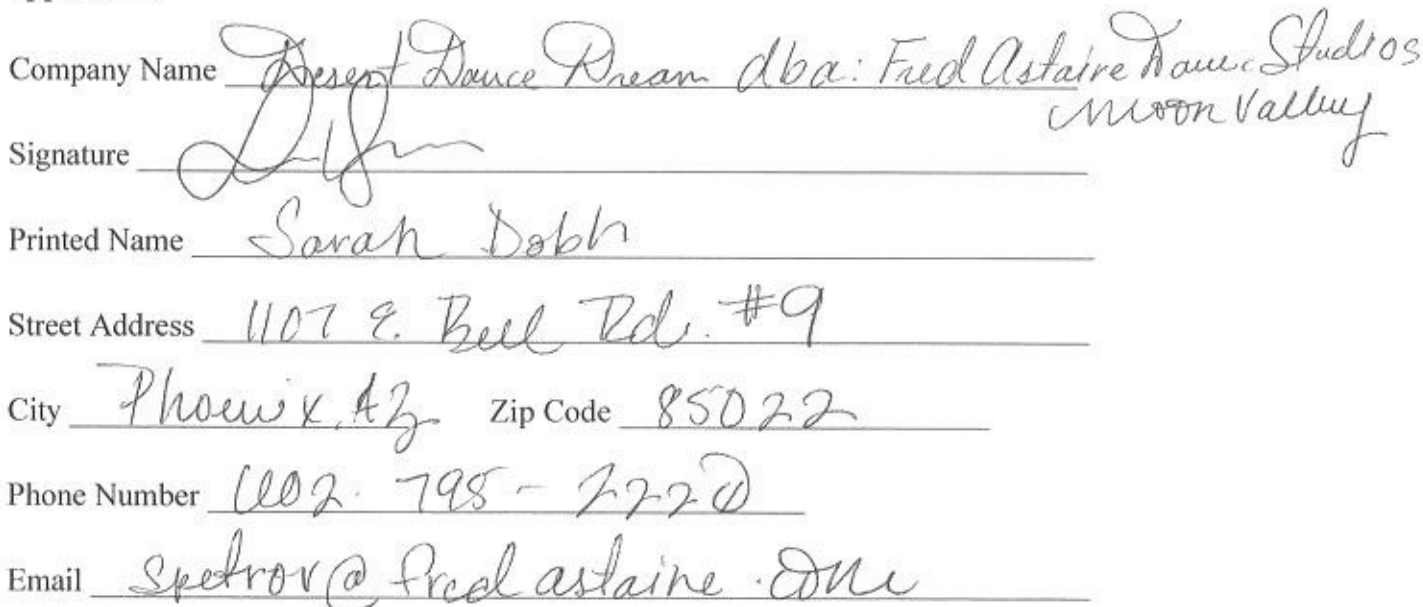 Company Name Desert Dance Dream dba: Fred Astaire Dance Studios
Moon Valley
Signature
Printed Name Sarah
Street Address 1107 E. Bell Rd. #9
City Phoenix, AZ Zip Code 85022
Phone Number 602. 795-2220
Email Spetrov@fredastaire.com